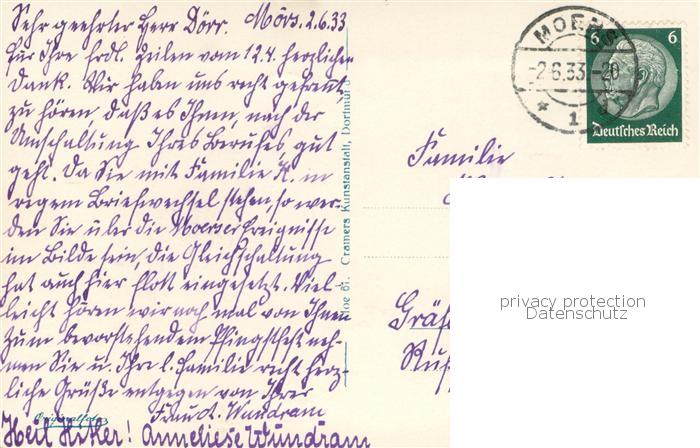 Sehr geehrter Herr Dörr. Mörs. 2.6.33
für Ihre frdl. Zeilen vom 12.4. herzlichen
Dank. Wir haben uns recht gefreut,
zu hören, daß es Ihnen, nach der
Umschaltung Ihres Berufes, gut
geht. Da Sie mit Familie K. in
regem Briefwechsel stehen so wer-
den Sie über die Moerser Ereignisse
im Bilde sein, die Gleichschaltung
hat auch hier flott eingesetzt. Viel-
leicht hören wir noch mal von Ihnen
Zum bevorstehendem Pfingstfest neh-
men Sie u. Ihre l. Familie recht herz-
liche Grüße entgegen von Ihrer
Fam. A. Wundram
Originalfoto
Heil Hitler! Anneliese Wundram
Moe 61. Cramers Kunstanstalt, Dortmund
MOERS
-2.6.33.-20
* 1
6 6
Deutsches Reich
Familie
privacy protection
Datenschutz